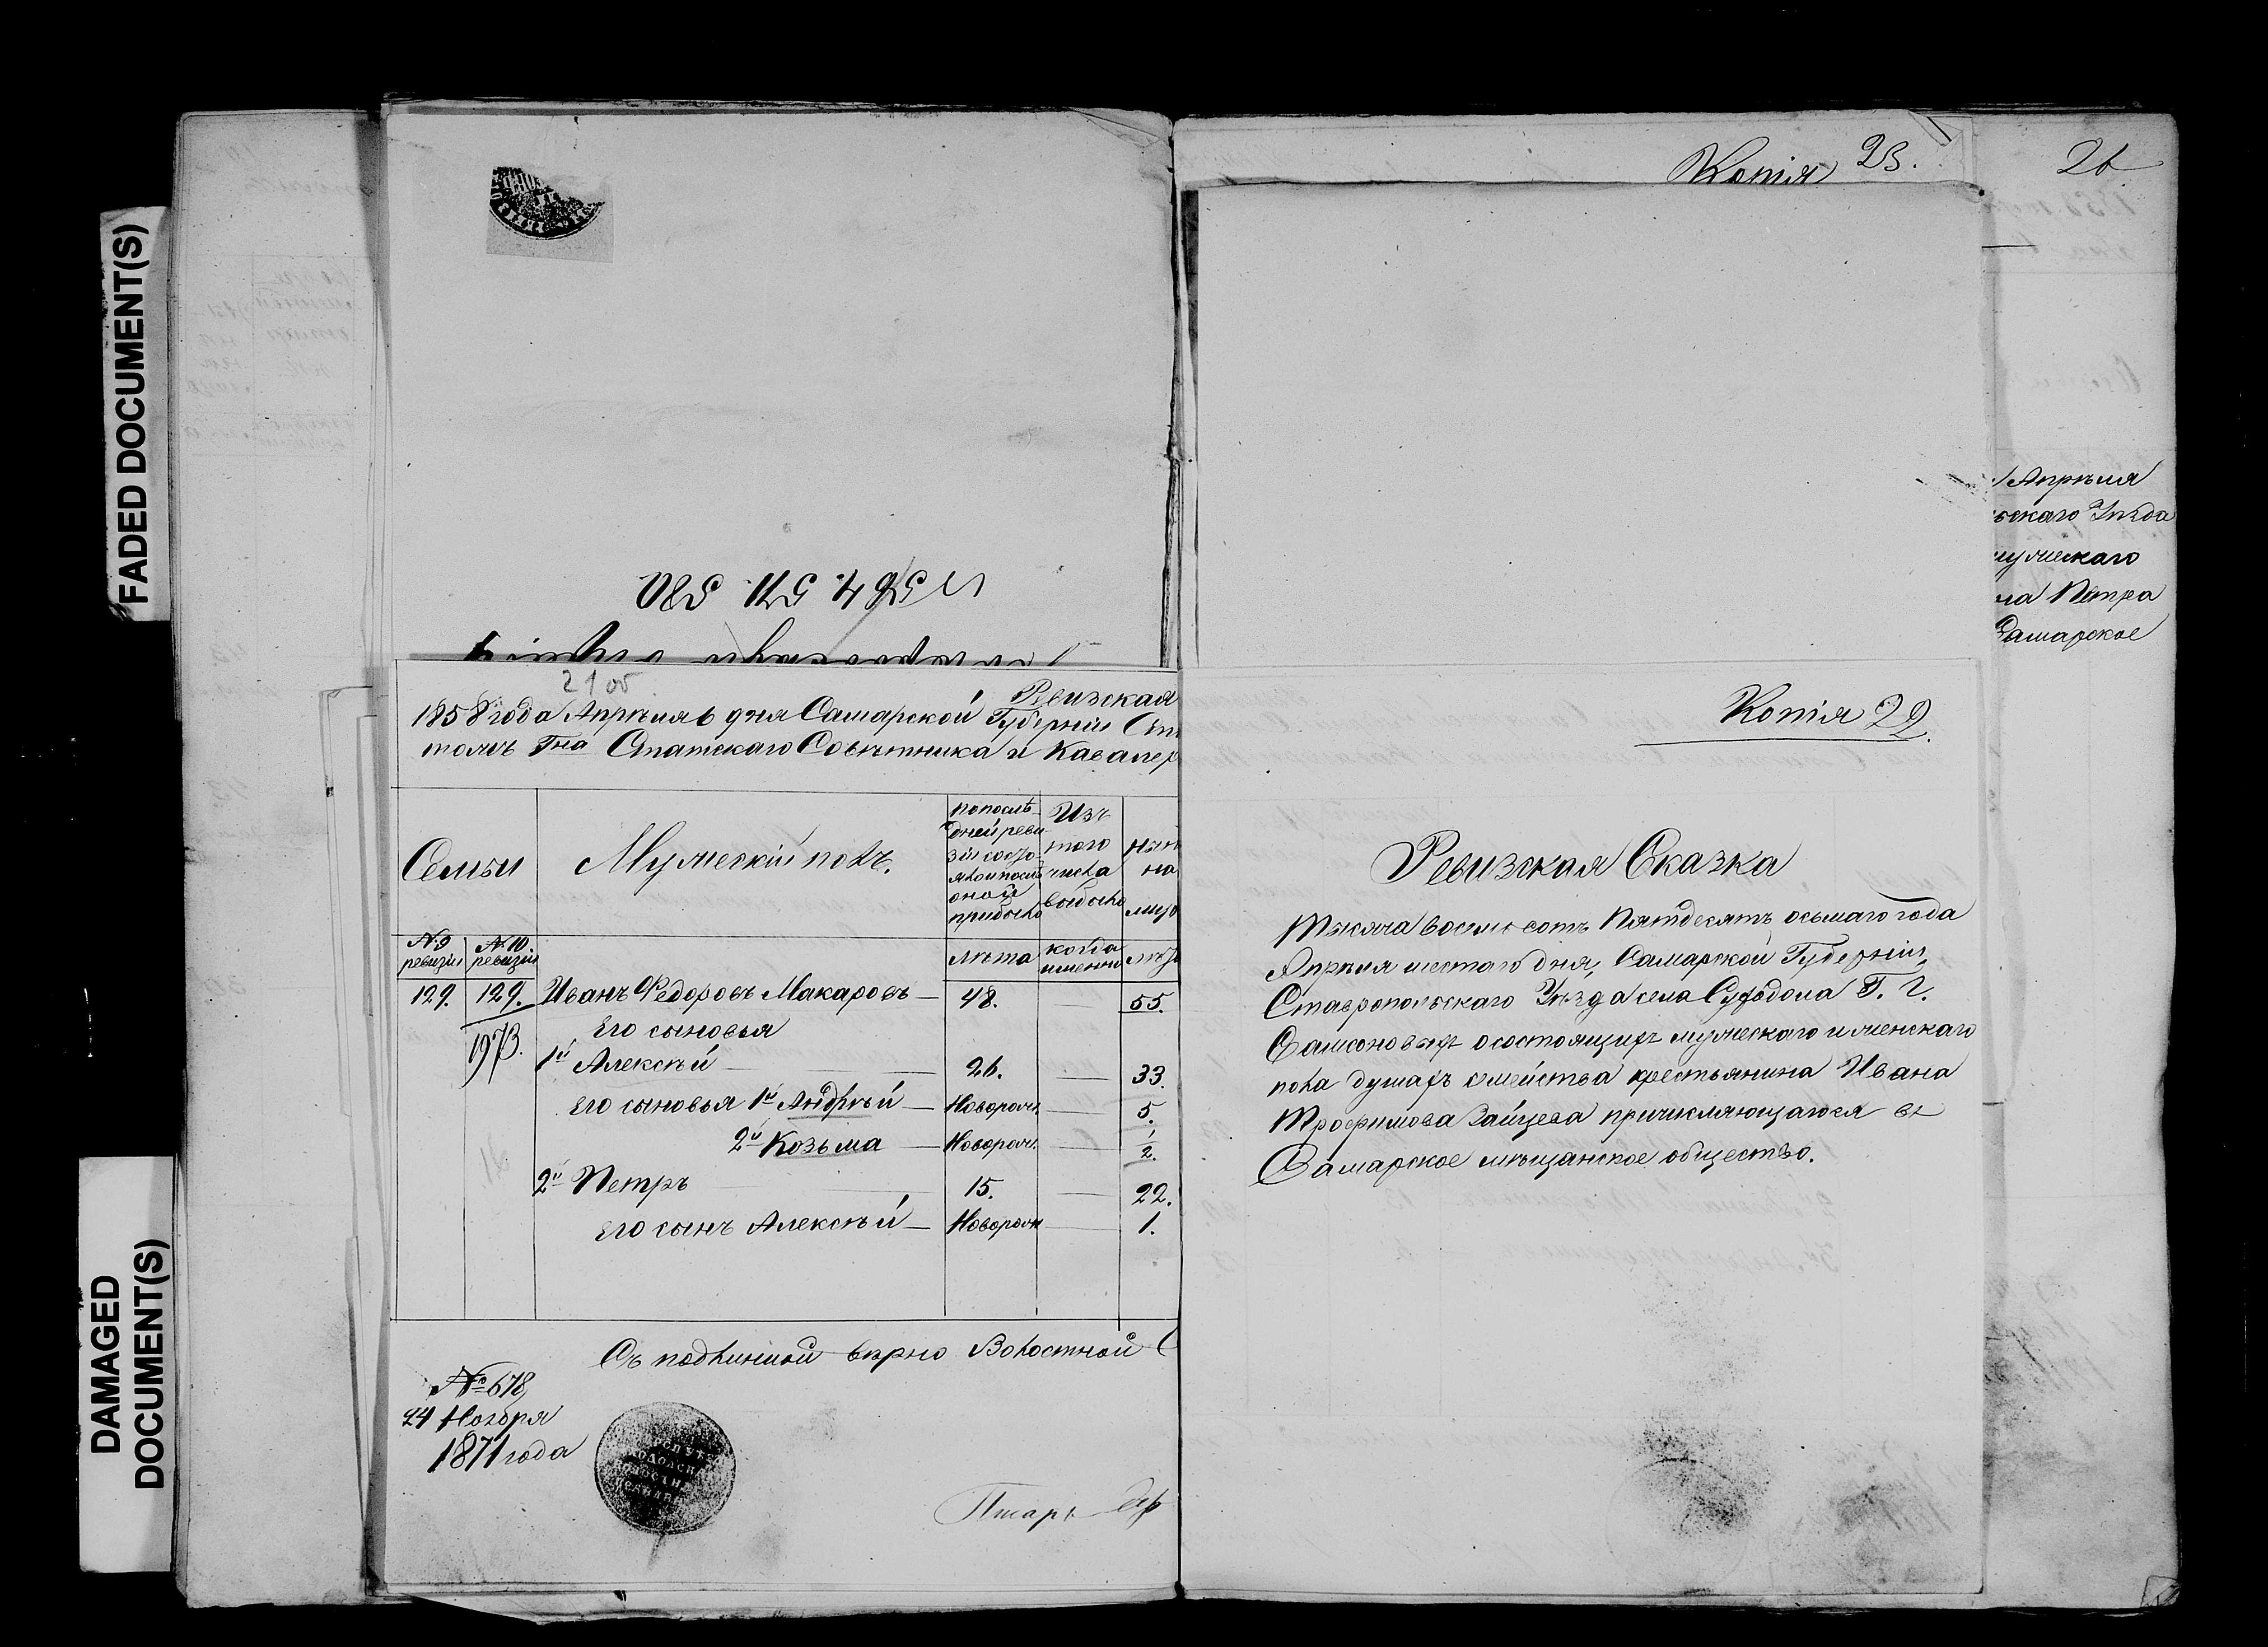 FADED DOCUMENT(S)
DAMAGED
DOCUMENT(S)
2100
Ревизская
1858 года Апрѣля 6 дня Самарской Губерніи
Гна Статскаго Совѣтника и Кавалер
Семьи
Мужескій полъ.
По послѣ-
дней реви-
зіи состо-
прибыло
Изъ
того
числа
выбыло
лѣта
когда
именно
№ 9
ревизіи
№ 10.
ревизіи
129. 129. Иванъ Федоровъ Макаровъ — 48. — 55.
1973.
Его сыновья
1й Алексѣй — 26. — 33.
Его сыновья 1й Андрѣй — Новорож. — 5.
2й Козьма — Новорож. — 1/2.
2й Петръ — 15. — 22.
Его сынъ Алексѣй — Новорож — 1.
Съ подлинной вѣрно Волостной
№ 678
24 Ноября
1871 года
Писарь
Копія 23.
Копія 22.
Ревизская Сказка
Тысяча восемь сотъ Пятдесятъ осьмаго года
Апрѣля шестаго дня, Самарской Губерніи,
Ставропольскаго Уѣзда села Суходола Г. Г.
Самсоновыхъ о состоящихъ мужескаго и женскаго
пола душахъ семейства крестьянина Ивана
Трофимова Зайцева причисляющагося въ
Самарское мѣщанское общество.
26
Апрѣля
ьскаго Уѣзда
мужескаго
ла Петра
Самарское